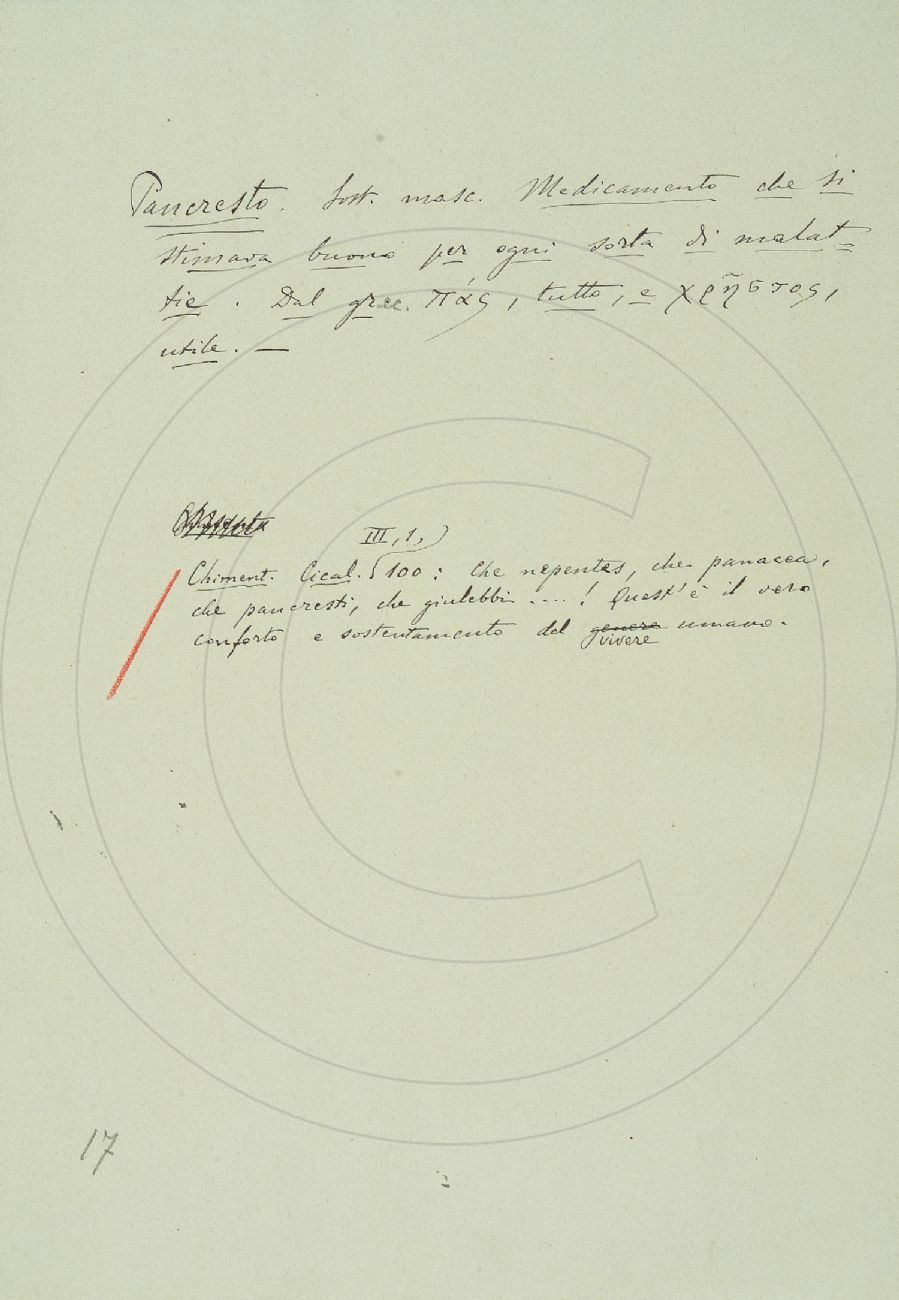 Pancresto. Sost. masc. Medicamento che si
stimava buono per ogni sorta di malat=
tie. Dal grec. πάς, tutto, e χρῆστος,
utile. —
III, 1,
Chiment. Cical. 100: Che nepentes, che panacea,
che pancresti, che giulebbi ....! Quest' è il vero
conforto e sostentamento del genere umano.
vivere
17